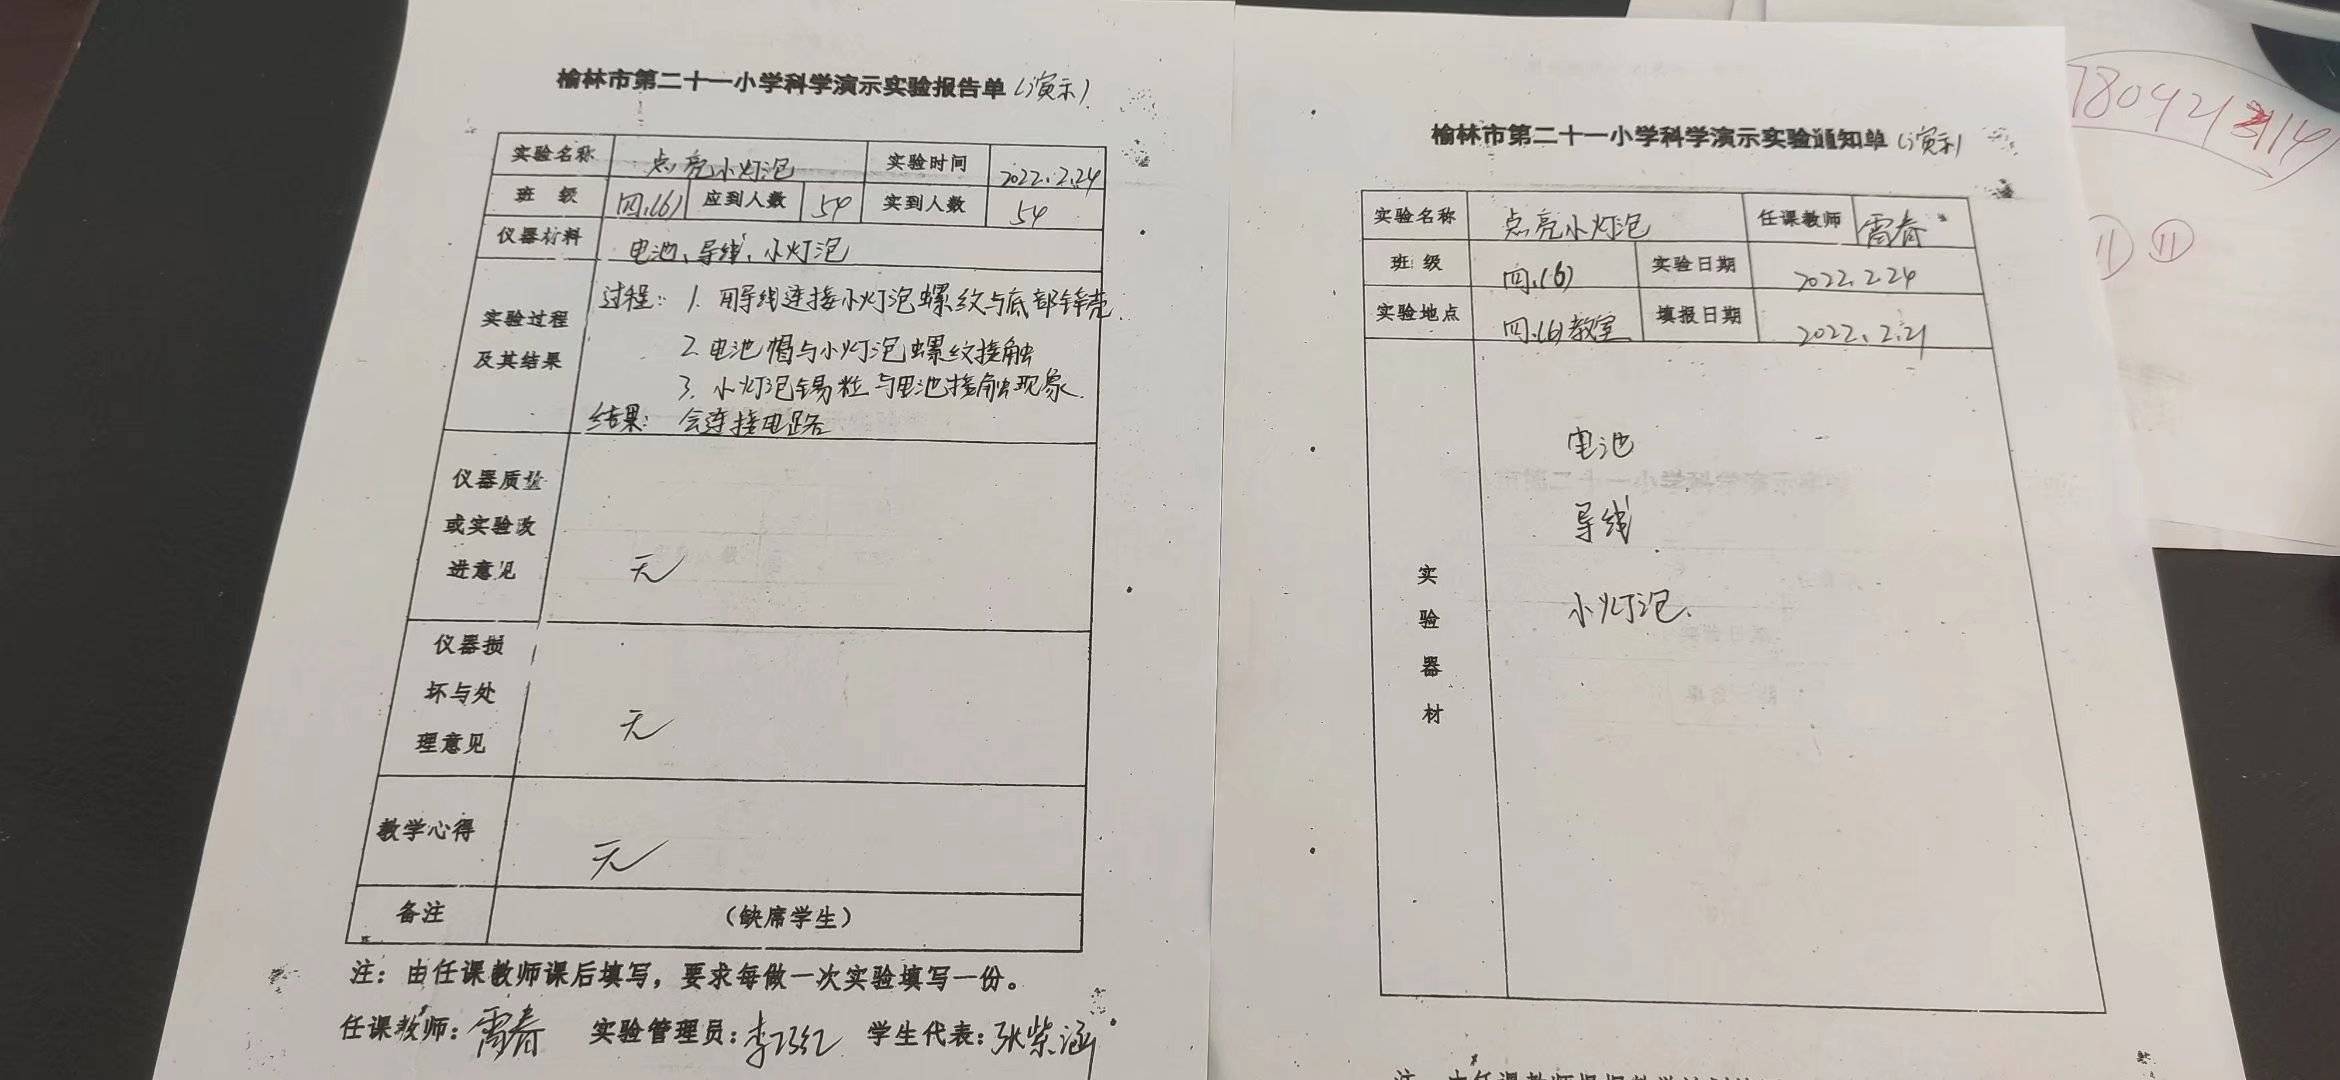 榆林市第二十一小学科学演示实验报告单（演示）
实验名称 点亮小灯泡 实验时间 2022.2.24
班 级 四.(6) 应到人数 54 实到人数 54
仪器材料 电池、导线、小灯泡
实验过程及其结果
过程：1. 用导线连接小灯泡螺纹与底部锌壳.
2. 电池帽与小灯泡螺纹接触
3. 小灯泡锡粒与电池接触现象.
结果：会连接电路
仪器质量或实验改进意见 无
仪器损坏与处理意见 无
教学心得 无
备注 （缺席学生）
注：由任课教师课后填写，要求每做一次实验填写一份。
任课教师： 实验管理员： 学生代表：张紫涵
榆林市第二十一小学科学演示实验通知单（演示）
实验名称 点亮小灯泡 任课教师
班 级 四.(6) 实验日期 2022.2.24
实验地点 四.(6)教室 填报日期 2022.2.21
实验器材
电池
导线
小灯泡.
11 11